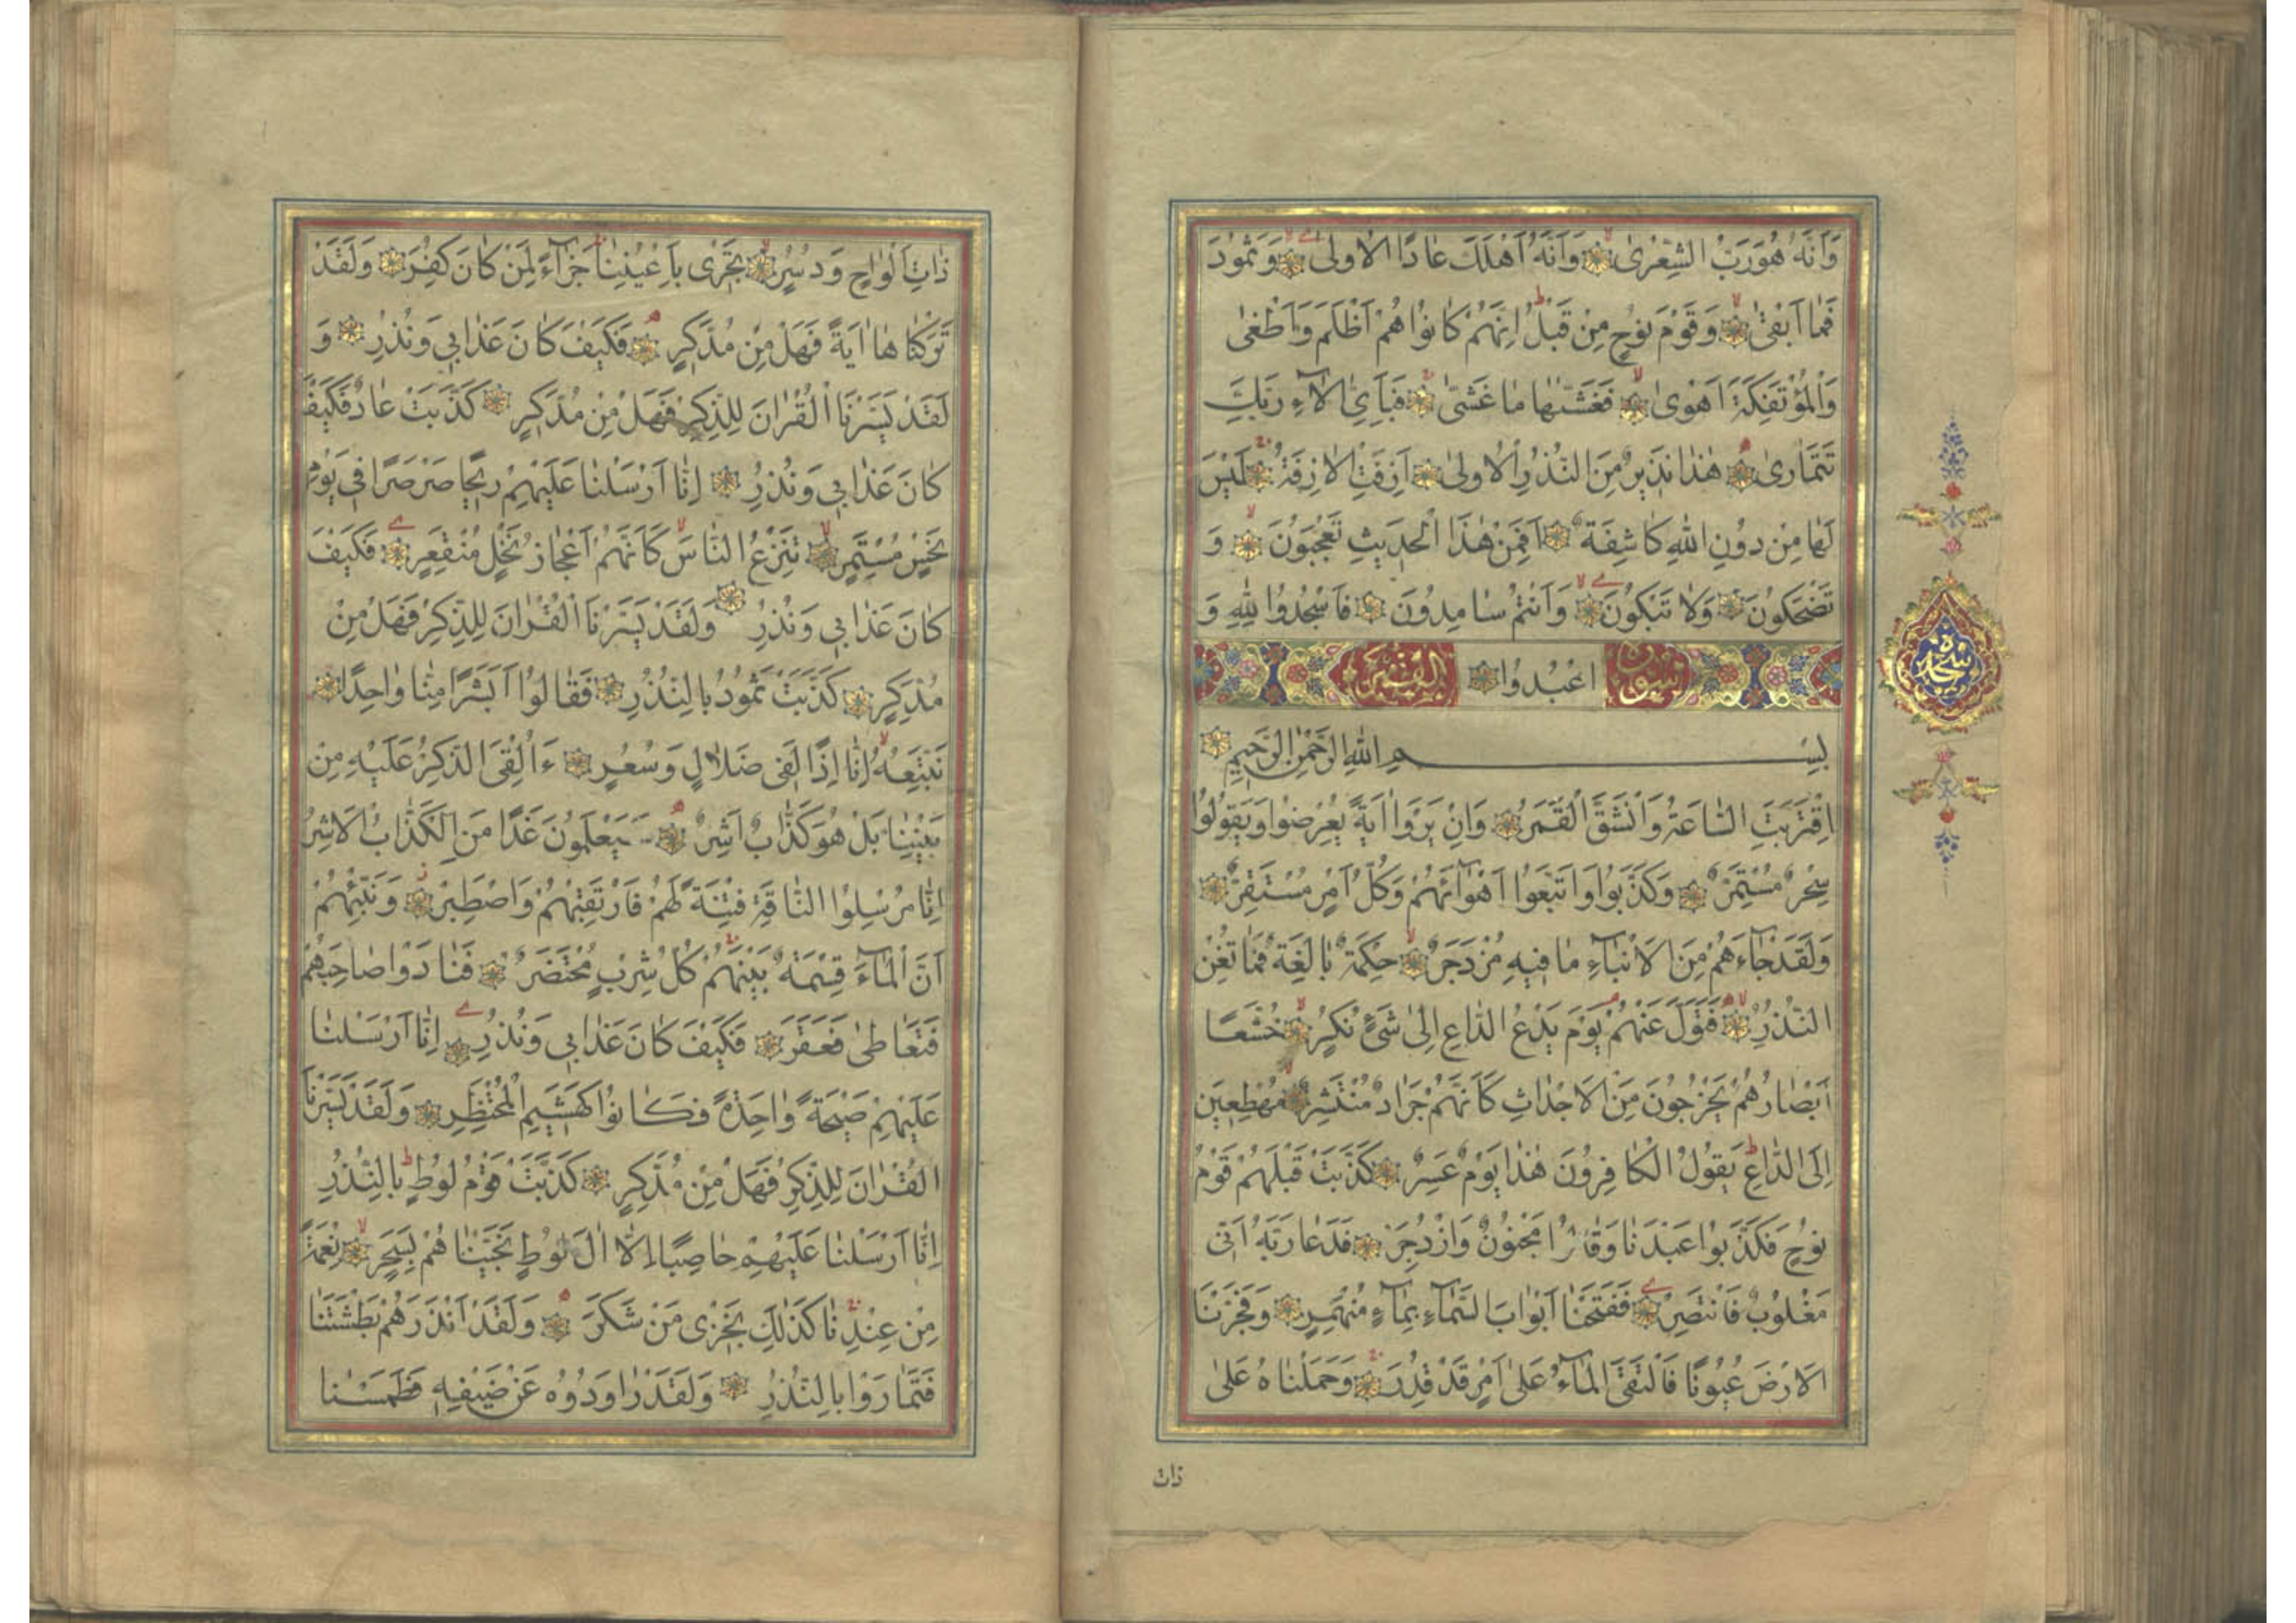 وَاَنَّهُ هُوَ رَبُّ الشِّعْرٰى وَاَنَّهُ اَهْلَكَ عَادًا الْاُولٰى وَثَمُودَ
فَمَا اَبْقٰى وَقَوْمَ نُوحٍ مِنْ قَبْلُ اِنَّهُمْ كَانُوا هُمْ اَظْلَمَ وَاَطْغٰى
وَالْمُؤْتَفِكَةَ اَهْوٰى فَغَشّٰيهَا مَا غَشّٰى فَبِاَيِّ اٰلَاءِ رَبِّكَ
تَتَمَارٰى هٰذَا نَذِيرٌ مِنَ النُّذُرِ الْاُولٰى اَزِفَتِ الْاٰزِفَةُ لَيْسَ
لَهَا مِنْ دُونِ اللّٰهِ كَاشِفَةٌ اَفَمِنْ هٰذَا الْحَدِيثِ تَعْجَبُونَ وَ
تَضْحَكُونَ وَلَا تَبْكُونَ وَاَنْتُمْ سَامِدُونَ فَاسْجُدُوا لِلّٰهِ وَ
سجده
سورة اعْبُدُوا القمر
بِسْمِ اللّٰهِ الرَّحْمٰنِ الرَّحِيمِ
اِقْتَرَبَتِ السَّاعَةُ وَانْشَقَّ الْقَمَرُ وَاِنْ يَرَوْا اٰيَةً يُعْرِضُوا وَيَقُولُوا
سِحْرٌ مُسْتَمِرٌّ وَكَذَّبُوا وَاتَّبَعُوا اَهْوَاءَهُمْ وَكُلُّ اَمْرٍ مُسْتَقِرٌّ
وَلَقَدْ جَاءَهُمْ مِنَ الْاَنْبَاءِ مَا فِيهِ مُزْدَجَرٌ حِكْمَةٌ بَالِغَةٌ فَمَا تُغْنِ
النُّذُرُ فَتَوَلَّ عَنْهُمْ يَوْمَ يَدْعُ الدَّاعِ اِلٰى شَيْءٍ نُكُرٍ خُشَّعًا
اَبْصَارُهُمْ يَخْرُجُونَ مِنَ الْاَجْدَاثِ كَاَنَّهُمْ جَرَادٌ مُنْتَشِرٌ مُهْطِعِينَ
اِلَى الدَّاعِ يَقُولُ الْكَافِرُونَ هٰذَا يَوْمٌ عَسِرٌ كَذَّبَتْ قَبْلَهُمْ قَوْمُ
نُوحٍ فَكَذَّبُوا عَبْدَنَا وَقَالُوا مَجْنُونٌ وَازْدُجِرَ فَدَعَا رَبَّهُ اَنِّي
مَغْلُوبٌ فَانْتَصِرْ فَفَتَحْنَا اَبْوَابَ السَّمَاءِ بِمَاءٍ مُنْهَمِرٍ وَفَجَّرْنَا
الْاَرْضَ عُيُونًا فَالْتَقَى الْمَاءُ عَلٰى اَمْرٍ قَدْ قُدِرَ وَحَمَلْنَاهُ عَلٰى
ذات
ذَاتِ اَلْوَاحٍ وَدُسُرٍ تَجْرِي بِاَعْيُنِنَا جَزَاءً لِمَنْ كَانَ كُفِرَ وَلَقَدْ
تَرَكْنَاهَا اٰيَةً فَهَلْ مِنْ مُدَّكِرٍ فَكَيْفَ كَانَ عَذَابِي وَنُذُرِ وَ
لَقَدْ يَسَّرْنَا الْقُرْاٰنَ لِلذِّكْرِ فَهَلْ مِنْ مُدَّكِرٍ كَذَّبَتْ عَادٌ فَكَيْفَ
كَانَ عَذَابِي وَنُذُرِ اِنَّا اَرْسَلْنَا عَلَيْهِمْ رِيحًا صَرْصَرًا فِي يَوْمِ
نَحْسٍ مُسْتَمِرٍّ تَنْزِعُ النَّاسَ كَاَنَّهُمْ اَعْجَازُ نَخْلٍ مُنْقَعِرٍ فَكَيْفَ
كَانَ عَذَابِي وَنُذُرِ وَلَقَدْ يَسَّرْنَا الْقُرْاٰنَ لِلذِّكْرِ فَهَلْ مِنْ
مُدَّكِرٍ كَذَّبَتْ ثَمُودُ بِالنُّذُرِ فَقَالُوا اَبَشَرًا مِنَّا وَاحِدًا
نَتَّبِعُهُ اِنَّا اِذًا لَفِي ضَلَالٍ وَسُعُرٍ ءَاُلْقِيَ الذِّكْرُ عَلَيْهِ مِنْ
بَيْنِنَا بَلْ هُوَ كَذَّابٌ اَشِرٌ سَيَعْلَمُونَ غَدًا مَنِ الْكَذَّابُ الْاَشِرُ
اِنَّا مُرْسِلُوا النَّاقَةِ فِتْنَةً لَهُمْ فَارْتَقِبْهُمْ وَاصْطَبِرْ وَنَبِّئْهُمْ
اَنَّ الْمَاءَ قِسْمَةٌ بَيْنَهُمْ كُلُّ شِرْبٍ مُحْتَضَرٌ فَنَادَوْا صَاحِبَهُمْ
فَتَعَاطٰى فَعَقَرَ فَكَيْفَ كَانَ عَذَابِي وَنُذُرِ اِنَّا اَرْسَلْنَا
عَلَيْهِمْ صَيْحَةً وَاحِدَةً فَكَانُوا كَهَشِيمِ الْمُحْتَظِرِ وَلَقَدْ يَسَّرْنَا
الْقُرْاٰنَ لِلذِّكْرِ فَهَلْ مِنْ مُدَّكِرٍ كَذَّبَتْ قَوْمُ لُوطٍ بِالنُّذُرِ
اِنَّا اَرْسَلْنَا عَلَيْهِمْ حَاصِبًا اِلَّا اٰلَ لُوطٍ نَجَّيْنَاهُمْ بِسَحَرٍ نِعْمَةً
مِنْ عِنْدِنَا كَذٰلِكَ نَجْزِي مَنْ شَكَرَ وَلَقَدْ اَنْذَرَهُمْ بَطْشَتَنَا
فَتَمَارَوْا بِالنُّذُرِ وَلَقَدْ رَاوَدُوهُ عَنْ ضَيْفِهِ فَطَمَسْنَا